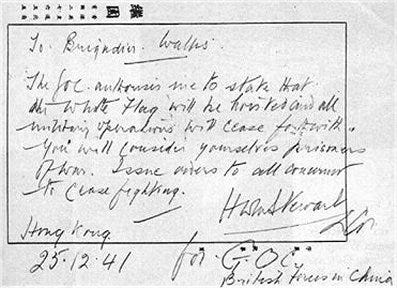 園
To. Brigadier. Wallis.
The GOC. authorises me to state that
the White Flag will be hoisted and all
military operations will cease forthwith.
You will consider yourselves prisoners
of war. Issue orders to all concerned
to cease fighting.
Stewart
Hong Kong
25.12.41
for. G.O.C.
British Forces in China